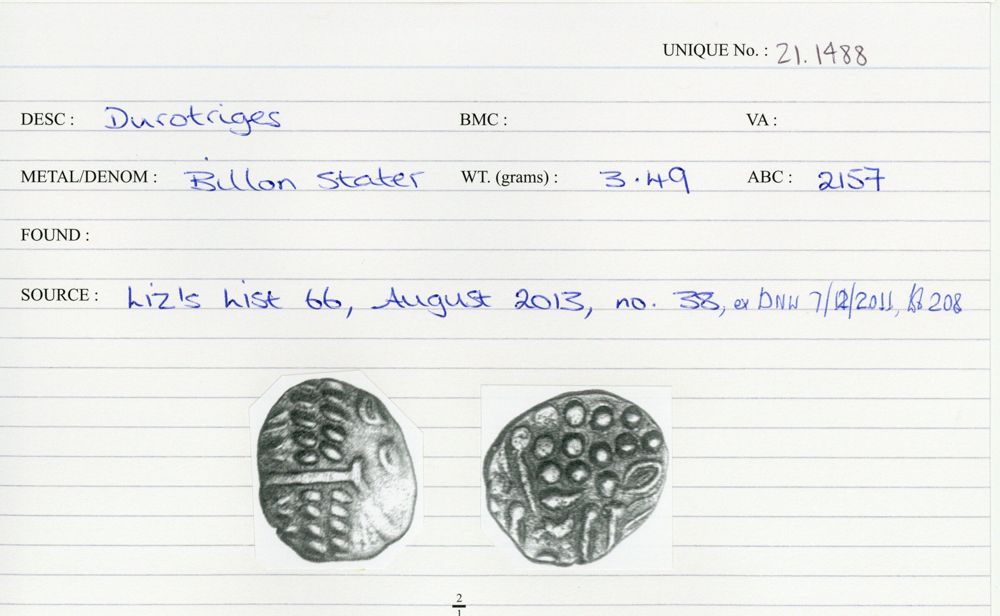 UNIQUE No. : 21.1488
DESC : Durotriges BMC : VA :
METAL/DENOM : Billon Stater WT. (grams) : 3.49 ABC : 2157
FOUND :
SOURCE : Liz's List 66, August 2013, no. 38, ex DNW 7/12/2011, 208
2
1